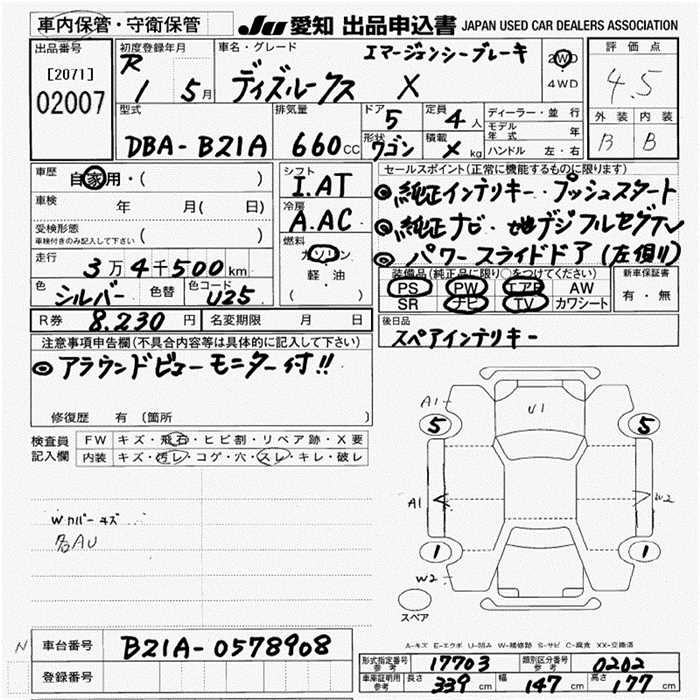 車内保管・守衛保管
JU 愛知 出品申込書 JAPAN USED CAR DEALERS ASSOCIATION
出品番号
[2071]
02007
初度登録年月
R 1 5月
車名・グレード
エマージェンシーブレーキ
ディズルークス X
2WD
4WD
評価点
4.5
外装 内装
B B
型式
DBA-B21A
排気量
660cc
ドア 5
定員 4人
形状 ワゴン
積載 X kg
ディーラー・並行
モデル年式 年
ハンドル 左・右
車歴 自家用・( )
車検 年 月( 日)
受検形態
車検付きのみ記入して下さい ( )
走行 3万4千500km
色 シルバー 色替 色コード U25
シフト I.AT
冷房 A.AC
燃料 ガソリン
軽・油
( )
セールスポイント(正常に機能するものに限ります)
◎純正インテリキー・プッシュスタート
◎純正ナビ・地デジフルセグTV
◎パワースライドドア(左側)
装備品(純正品に限り○をつけてください)
PS PW エアB AW
SR ナビ TV カワシート
新車保証書
有・無
R券 8.230円 名変期限 月 日
後日品
スペアインテリキー
注意事項申告欄(不具合内容等は具体的に記入して下さい)
◎アラウンドビューモニター付!!
修復歴 有 (箇所 )
検査員記入欄
FW キズ・飛石・ヒビ割・リペア跡・X要
内装 キズ・汚レ・コゲ・穴・スレ・キレ・破レ
Wカバーキズ
各AU
A1 U1
5 5
A1 W2
1 1
W2
スペア
A-キズ E-エクボ U-凹み W-補修跡 S-サビ C-腐食 XX-交換済
N
車台番号 B21A-0578908
登録番号
形式指定番号参考 17703 類別区分番号参考 0202
車庫証明用参考 長さ 339cm 幅 147cm 高さ 177cm